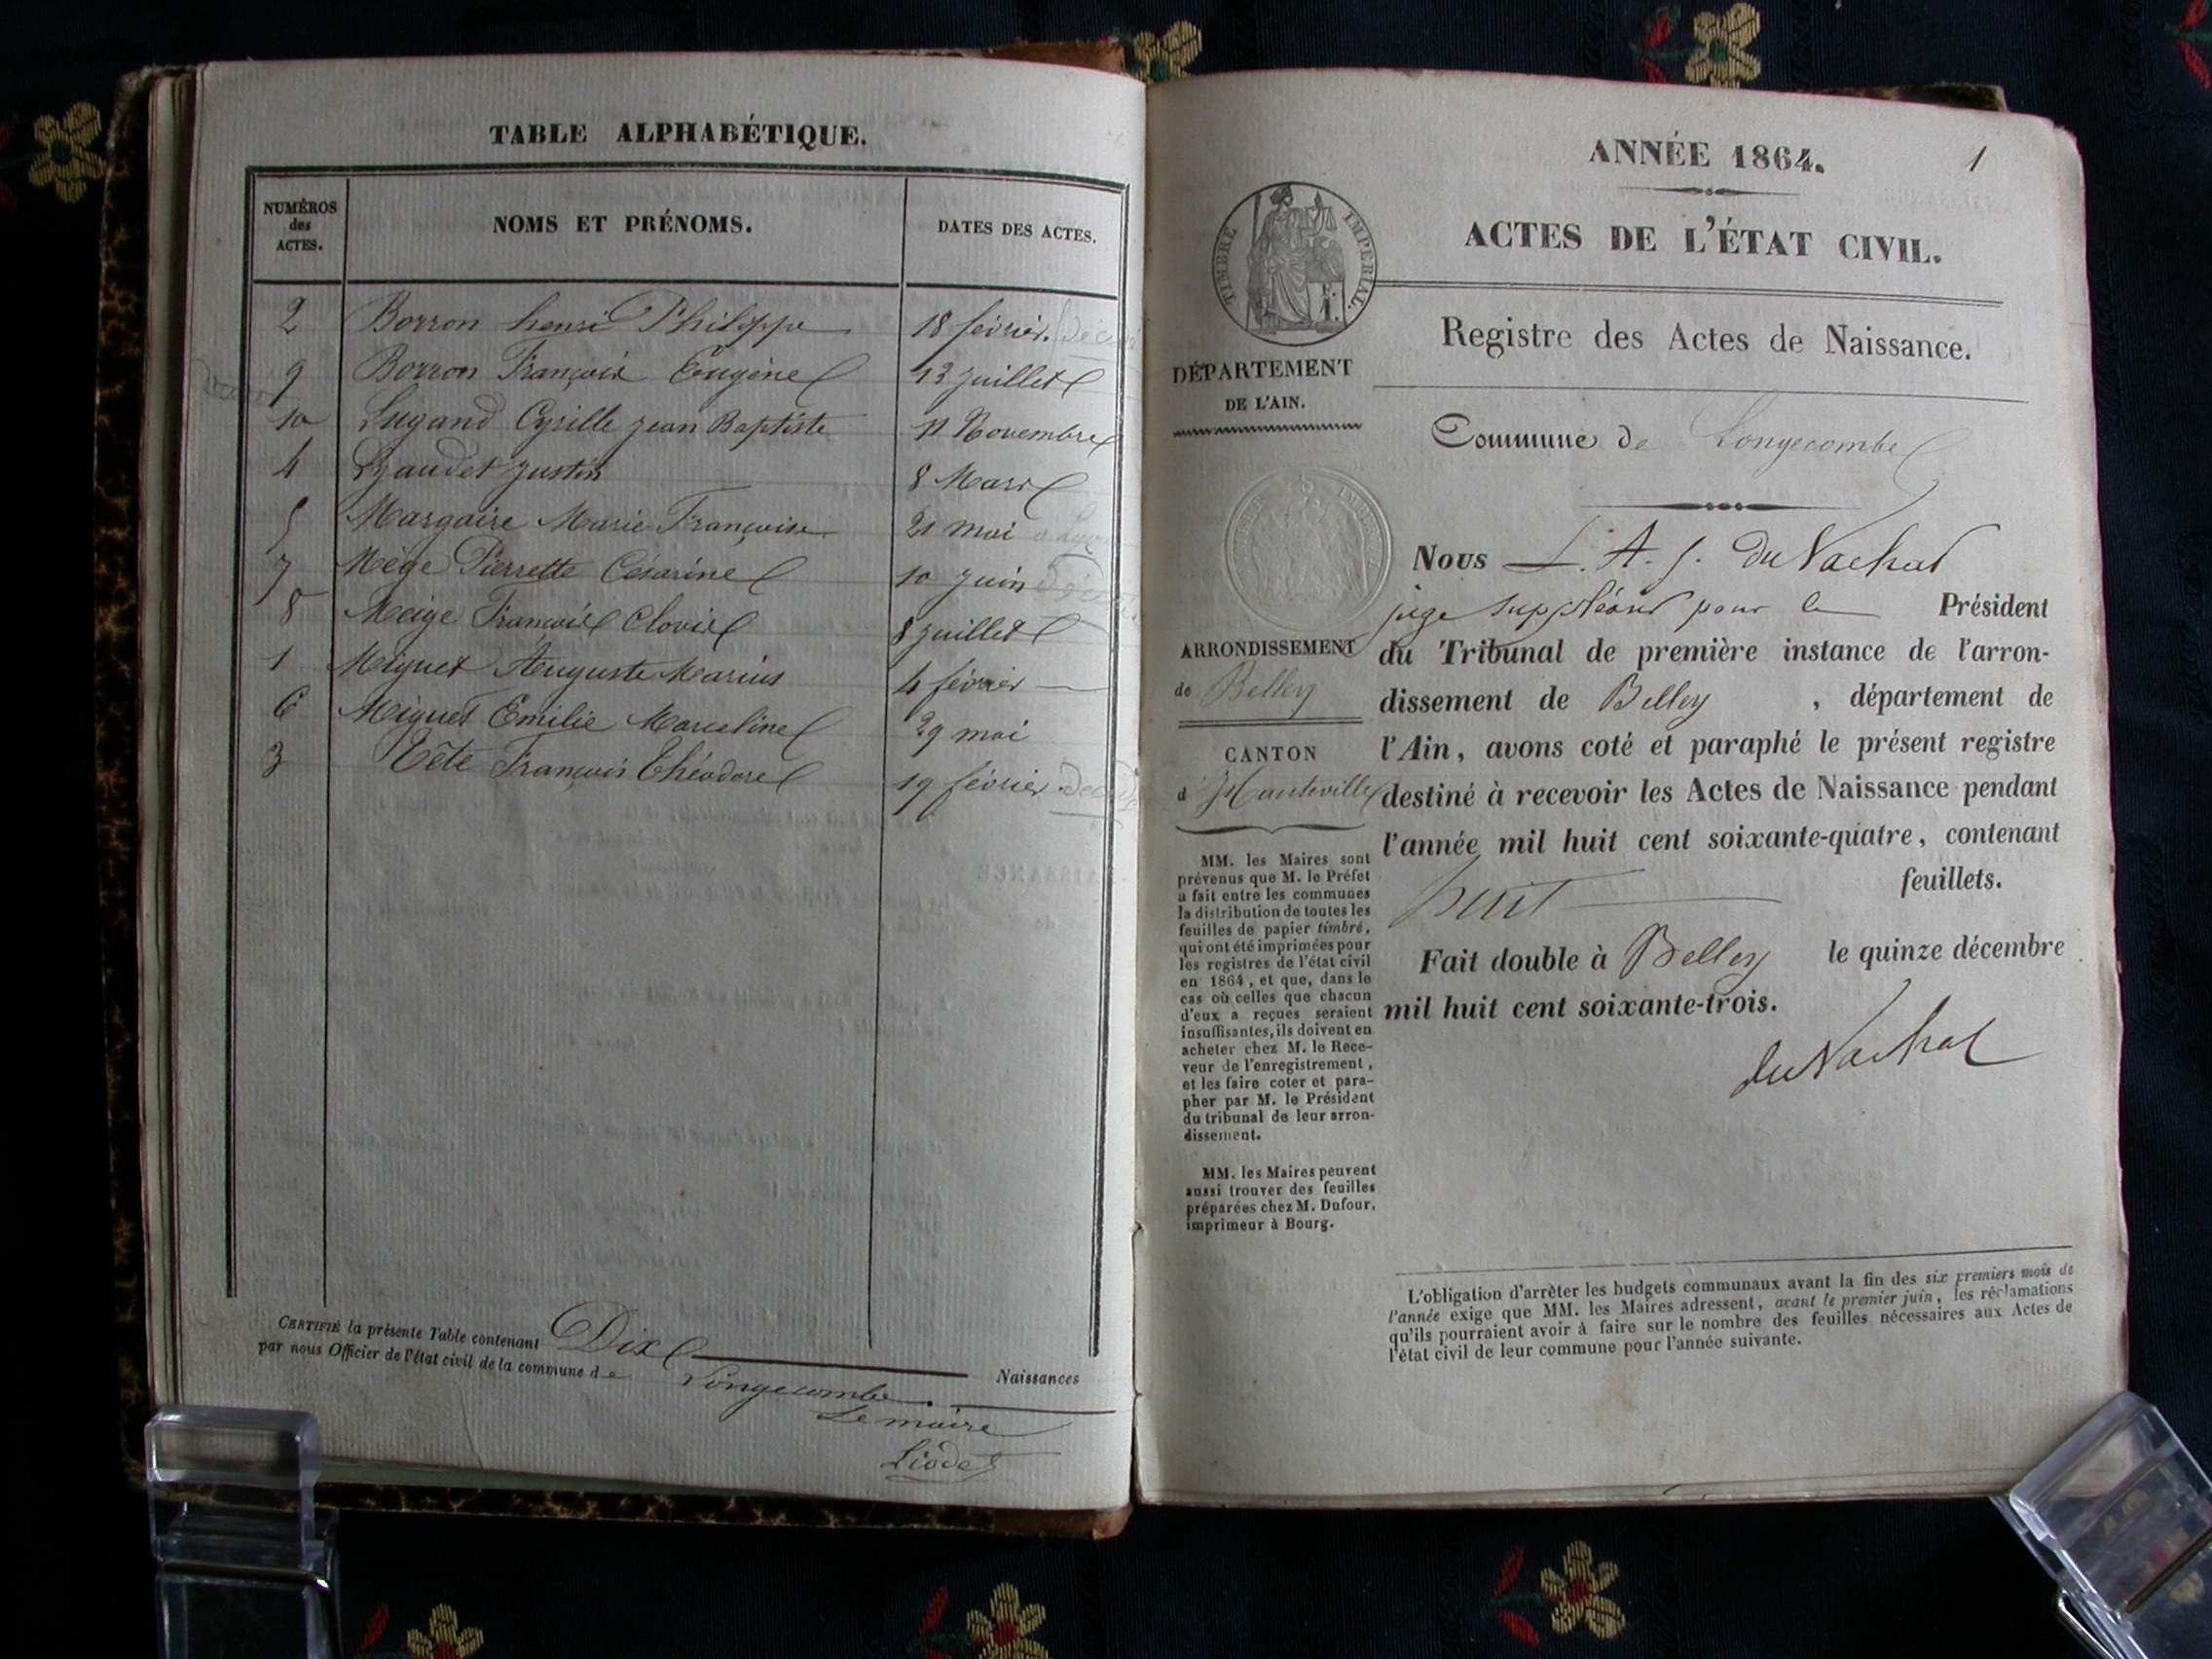 TABLE ALPHABÉTIQUE.
NUMÉROS
des
ACTES.
NOMS ET PRÉNOMS.
DATES DES ACTES.
2 Borron henri Philippe 18 février.
9 Borron François Eugène 13 juillet
10 Lugand Cyrille jean Baptiste 11 Novembre
4 justin 8 Mars
5 Margaire Marie Françoise 21 mai
7 Mège Pierrette Césarine 10 juin
8 Meige François Clovis 8 juillet
1 Miguet Auguste Marius 4 février
6 Miguet Emilie Marceline 29 mai
3 Tête François Théodore 19 février
CERTIFIÉ la présente Table contenant Dix Naissances
par nous Officier de l'état civil de la commune de Longecombe
Le maire
Liodet
1
ANNÉE 1864.
ACTES DE L'ÉTAT CIVIL.
TIMBRE IMPÉRIAL.
Registre des Actes de Naissance.
DÉPARTEMENT
DE L'AIN.
Commune de Longecombe
ARRONDISSEMENT
de Belley
CANTON
d'Hauteville
MM. les Maires sont
prévenus que M. le Préfet
a fait entre les communes
la distribution de toutes les
feuilles de papier timbré,
qui ont été imprimées pour
les registres de l'état civil
en 1864, et que, dans le
cas où celles que chacun
d'eux a reçues seraient
insuffisantes, ils doivent en
acheter chez M. le Rece-
veur de l'enregistrement,
et les faire coter et para-
pher par M. le Président
du tribunal de leur arron-
dissement.
MM. les Maires peuvent
aussi trouver des feuilles
préparées chez M. Dufour,
imprimeur à Bourg.
Nous L. A. J. du Vachat
juge suppléant pour le Président
du Tribunal de première instance de l'arron-
dissement de Belley, département de
l'Ain, avons coté et paraphé le présent registre
destiné à recevoir les Actes de Naissance pendant
l'année mil huit cent soixante-quatre, contenant
huit feuillets.
Fait double à Belley le quinze décembre
mil huit cent soixante-trois.
du Vachat
L'obligation d'arrêter les budgets communaux avant la fin des six premiers mois de
l'année exige que MM. les Maires adressent, avant le premier juin, les réclamations
qu'ils pourraient avoir à faire sur le nombre des feuilles nécessaires aux Actes de
l'état civil de leur commune pour l'année suivante.